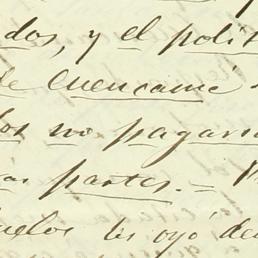 dos, y el polit
de Cuencamé
los no pagaran
as partes. =
uelos les oyó de